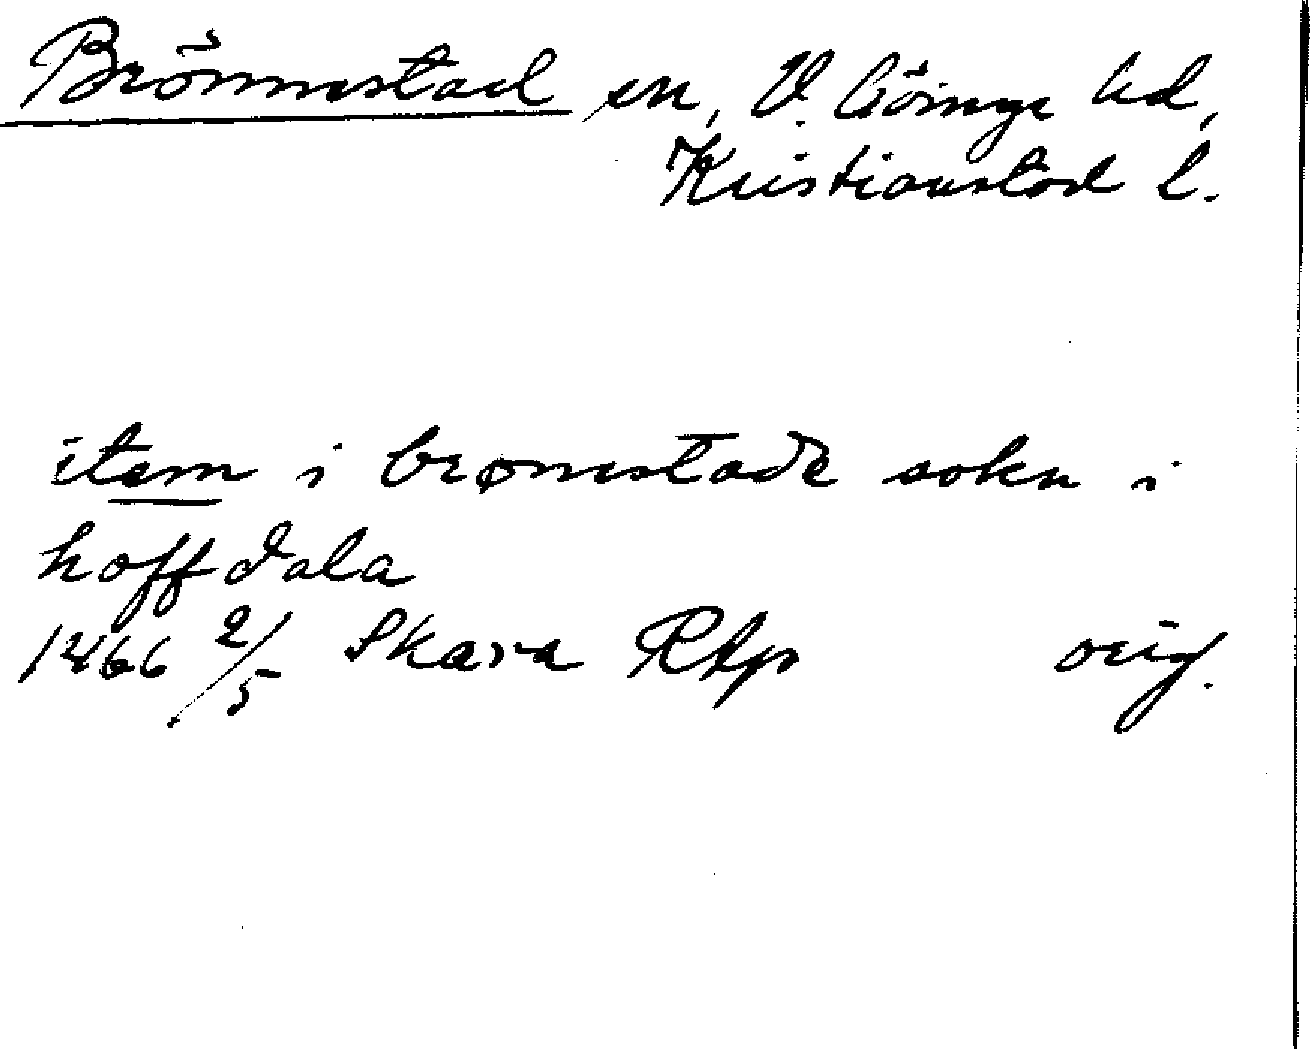 Brönnestad sn, V. Göinge hd,
Kristianstad l.
item i brømstade sokn i
hoffdala
1466 2/5 Skara RAp orig.